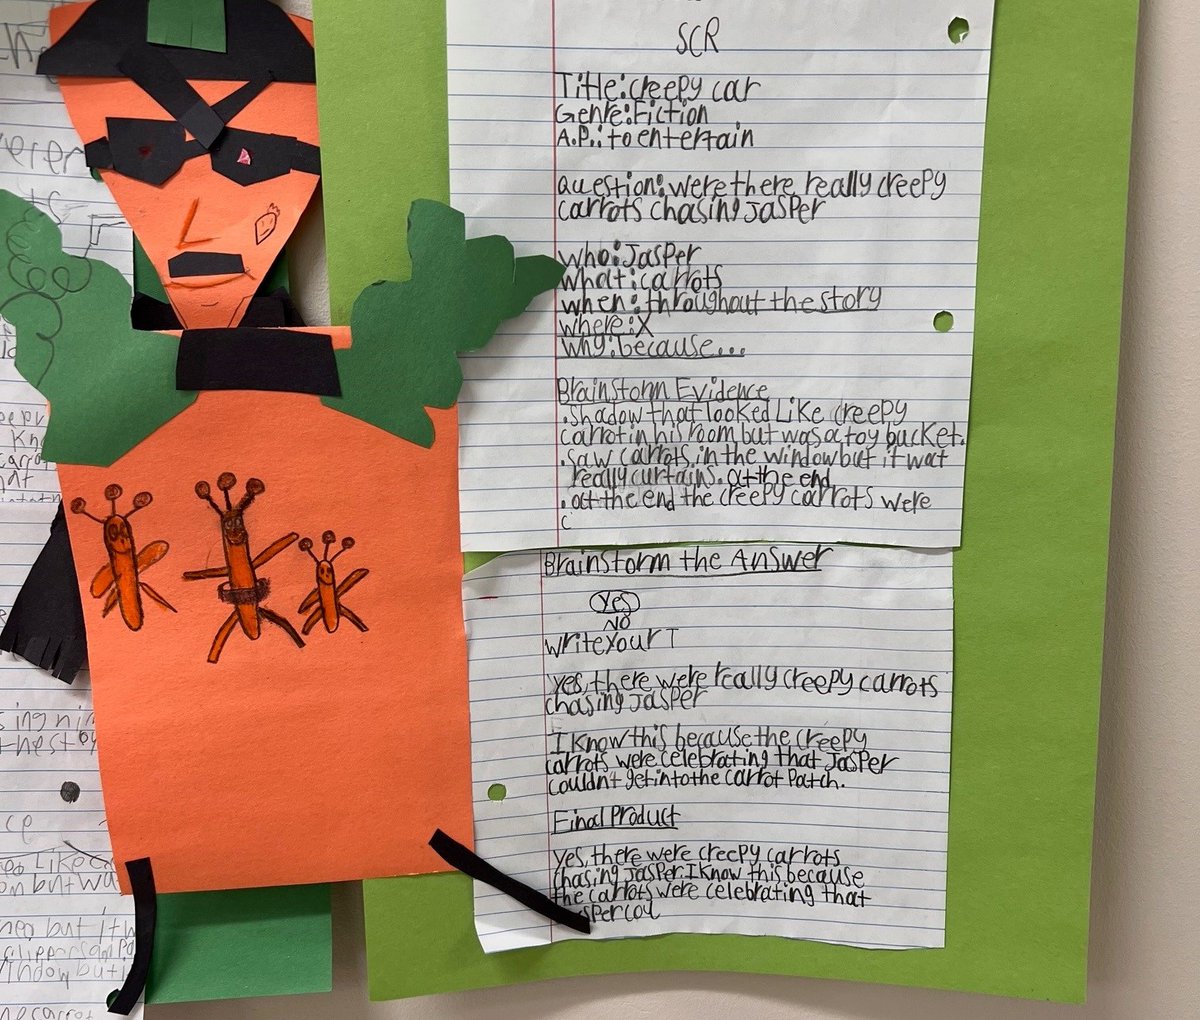 SCR
Title: creepy car
Genre: Fiction
A.P.: to entertain
question: were there really creepy
carrots chasing Jasper
who: Jasper
what: carrots
when: throughout the story
where: X
why: because...
Brainstorm Evidence
. shadow that looked Like creepy
carrot in his room but was a toy bucket.
. saw carrots in the window but it wat
really curtains. at the end
. at the end the creepy carrots were
c
Brainstorm the Answer
Yes
NO
write your T
yes, there were really creepy carrots
chasing Jasper
I know this because the creepy
carrots were celebrating that Jasper
couldn't get into the carrot Patch.
Final Product
yes, there were creepy carrots
chasing Jasper. I know this because
the carrots were celebrating that
sper cou